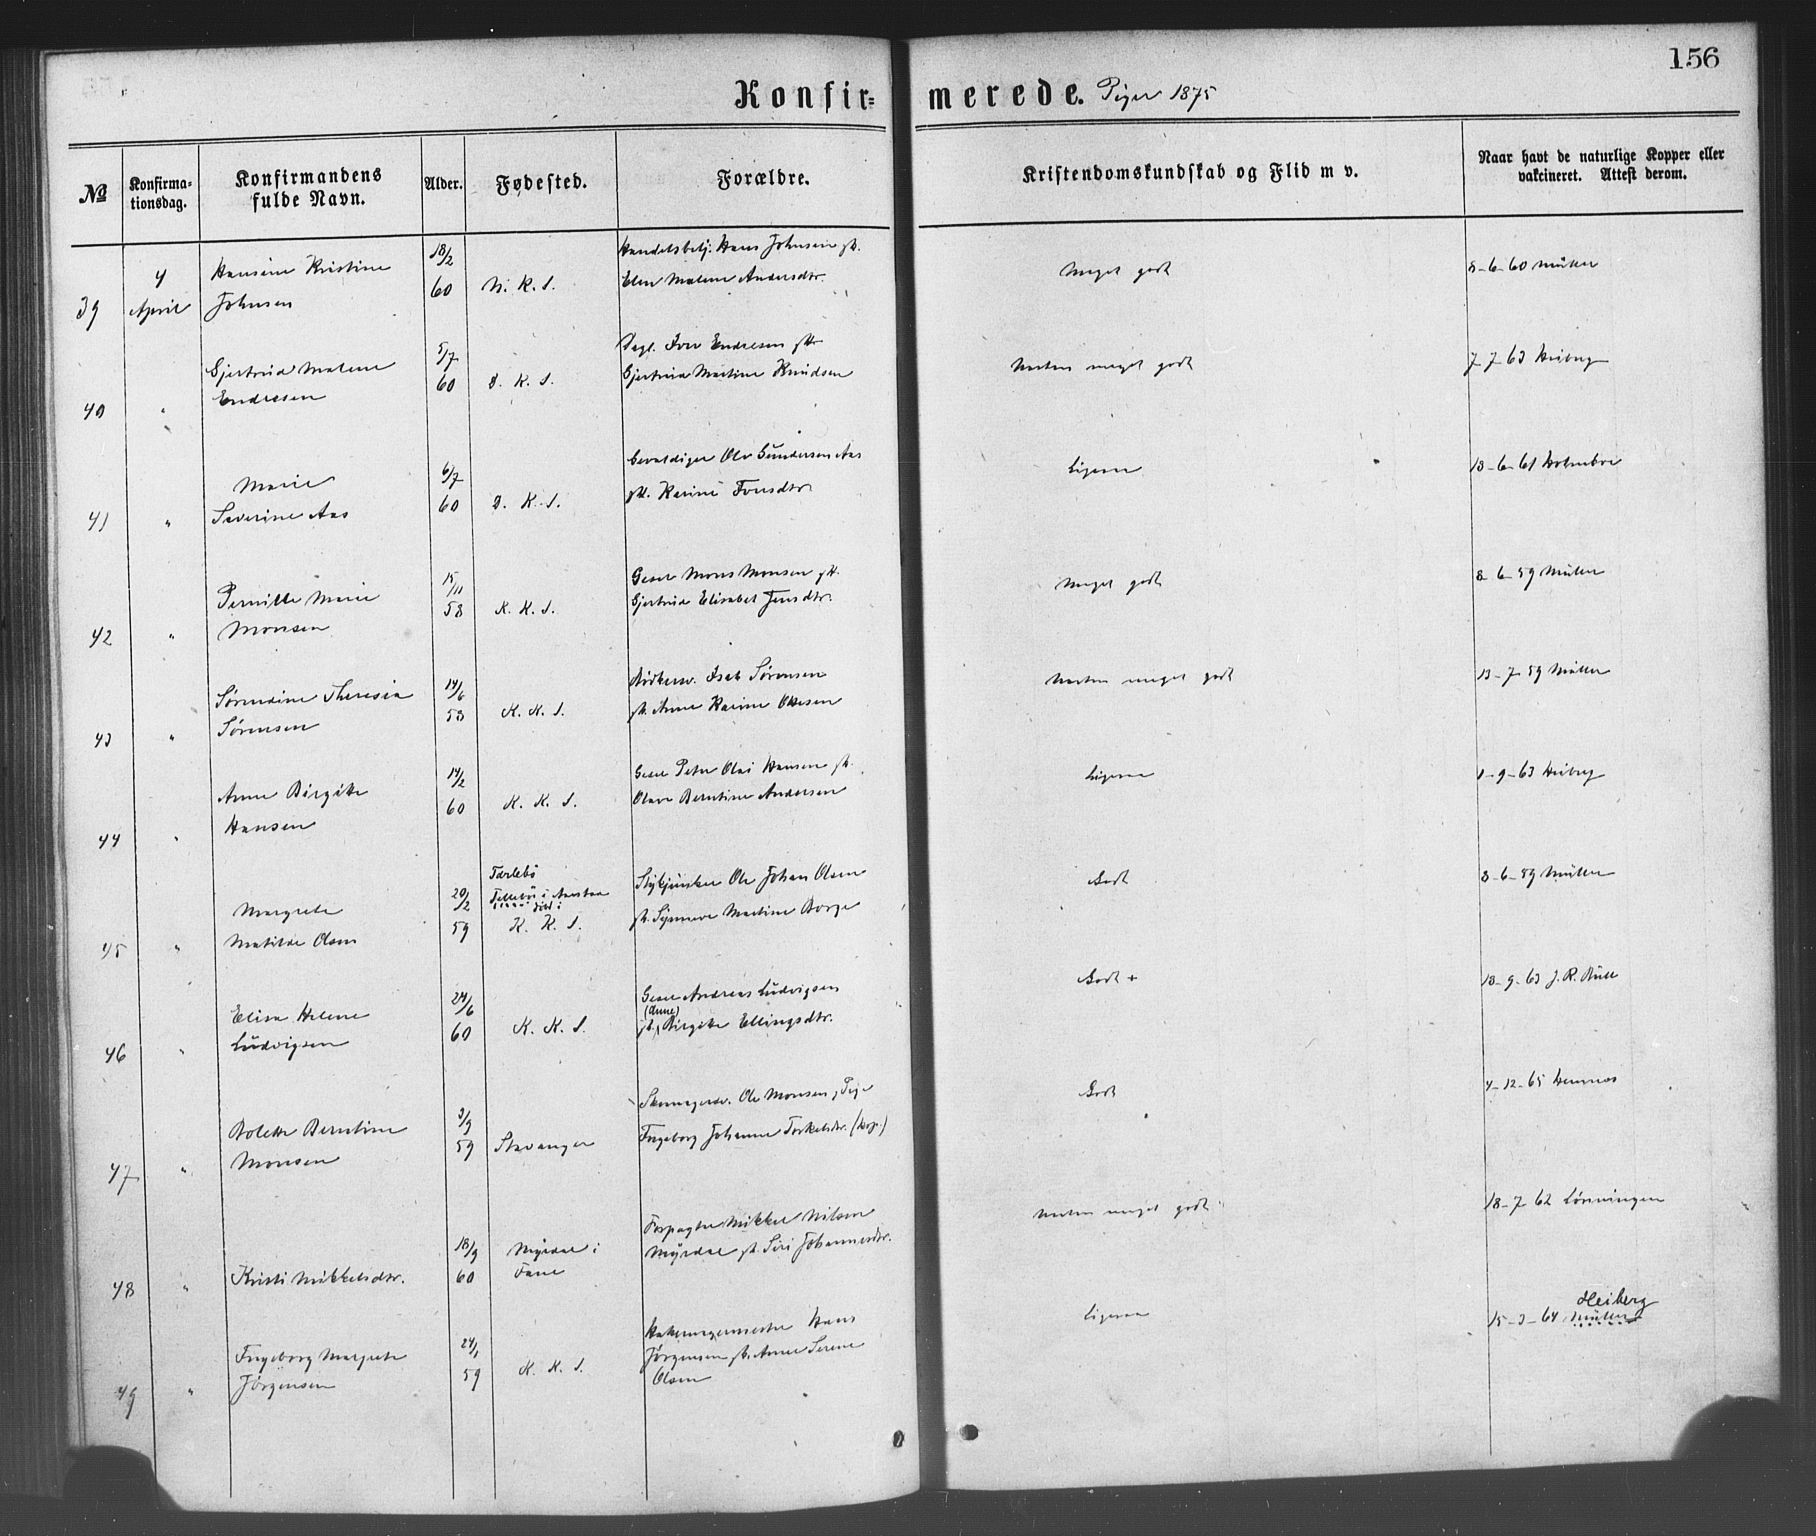 156
Konfir= merede. Piger 1875
No
Konfirma-
tionsdag.
Konfirmandens
fulde Navn.
Alder.
Fødested.
Forældre.
Kristendomskundskab og Flid m v.
Naar havt de naturlige Kopper eller
vakcineret. Attest derom.
39
4
April
Hansine Kristine
Johnsen
18/2
60
N. K. S.
Handelsbetj. Hans Johnsen og H.
Elen Malene Andersdtr.
Meget godt
8-6-60 Müller
40
"
Gjertrud Malene
Endresen
5/7
60
D. K. S.
Dagl. Iver Endresen
Gjertrud Martine Knudsen
Næsten meget godt
7-7-63 Heiberg
41
"
Marie
Severine Aas
6/7
60
D. K. S.
Gevaldiger Ole Gundersen Aas
Karine Iversdtr.
Ligesaa
13-6-61 Holmboe
42
"
Pernille Marie
Monsen
15/11
58
K. K. S.
Gesel Mons Monsen
Gjertrud Elisabet Jensdtr.
Meget godt
8-6-59 Müller
43
"
Sørendine Theresia
Sørensen
14/6
58
K. K. S.
Bødkersv. Isak Sørensen
Anne Karine Olsen
Næsten meget godt
13-7-59 Müller
44
"
Anne Birgitte
Hansen
14/2
60
K. K. S.
Gesel Peter Olai Hansen
Olave Berntine Andersen
Ligesaa
1-9-63 Heiberg
45
"
Margrete
Matilde Olsen
20/2
59
K. K. S.
Ole Johan Olsen
Synneve Martine Borge
Godt
8-6-59 Müller
46
"
Elisa Helene
Ludvigsen
24/6
60
K. K. S.
Gesel Andreas Ludvigsen
(Anne)
Birgitte Ellingsdtr.
Godt +
18-9-63 J. R. Bull
47
"
Bolette Berntine
Monsen
3/9
59
Stavanger
Skomagersv. Ole Monsen, Pige
Ingeborg Johanne Torkelsdtr.
Godt
4-12-65
48
"
Kristi Mikkelsdtr.
18/9
60
Myrdal i
Fane
Forpagter Mikkel Nilsen
Myrdal Siri Johannesdtr.
Næsten meget godt
18-7-62 Lönningen
49
"
Ingeborg Margrete
Jørgensen
24/1
59
K. K. S.
Hattemagermester Hans
Jørgensen Anne Serene
Olsen
Ligesaa
Heiberg
15-3-64 Müller